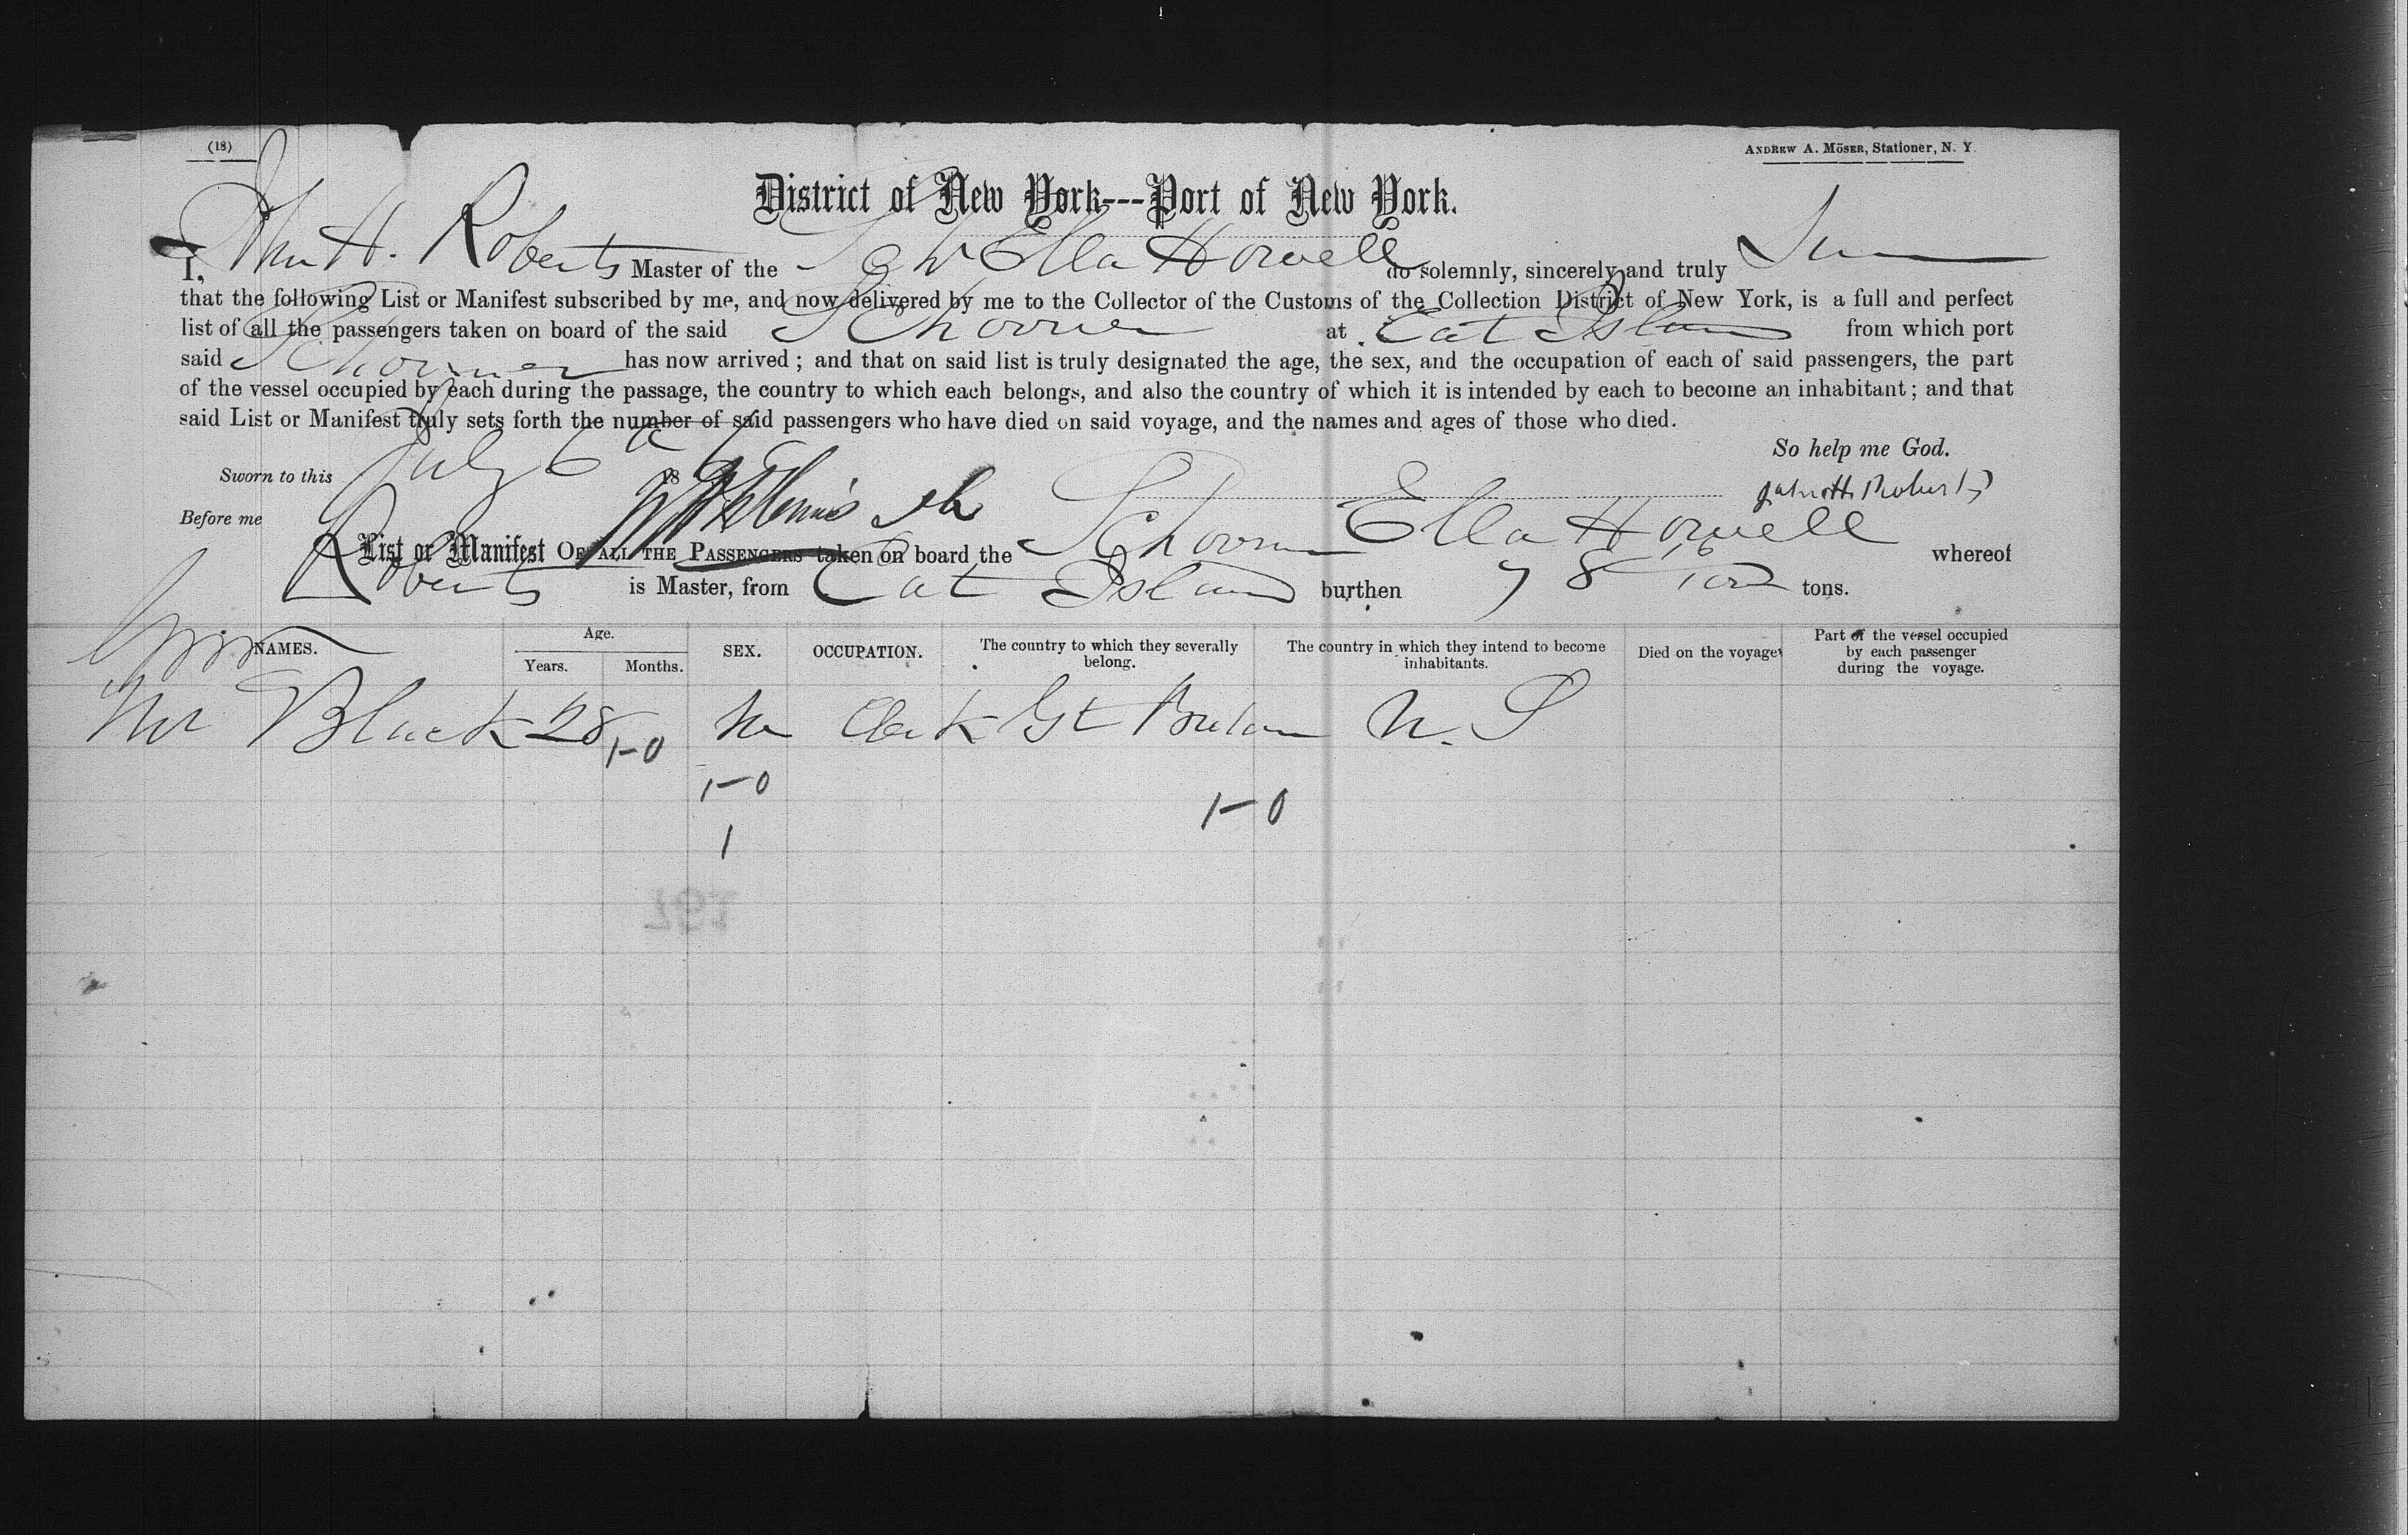 (18)
ANDREW A. MÖSER, Stationer, N. Y.
District of New York---Port of New York.
I, John H. Roberts Master of the Sch Ella Howell do solemnly, sincerely and truly
that the following List or Manifest subscribed by me, and now delivered by me to the Collector of the Customs of the Collection District of New York, is a full and perfect
list of all the passengers taken on board of the said Schooner at Cat Island from which port
said Schooner has now arrived; and that on said list is truly designated the age, the sex, and the occupation of each of said passengers, the part
of the vessel occupied by each during the passage, the country to which each belongs, and also the country of which it is intended by each to become an inhabitant; and that
said List or Manifest truly sets forth the number of said passengers who have died on said voyage, and the names and ages of those who died.
So help me God.
Sworn to this July 6th 18
John H Roberts
Before me
List or Manifest OF ALL THE PASSENGERS taken on board the Schooner Ella Howell whereof
Roberts is Master, from Cat Island burthen 78 16/100 tons.
NAMES. Age. Years. Months. SEX. OCCUPATION. The country to which they severally belong. The country in which they intend to become inhabitants. Died on the voyage. Part of the vessel occupied by each passenger during the voyage.
Mr Black 28 M Clerk Gt Britain U. S
1-0
1-0
1-0
1